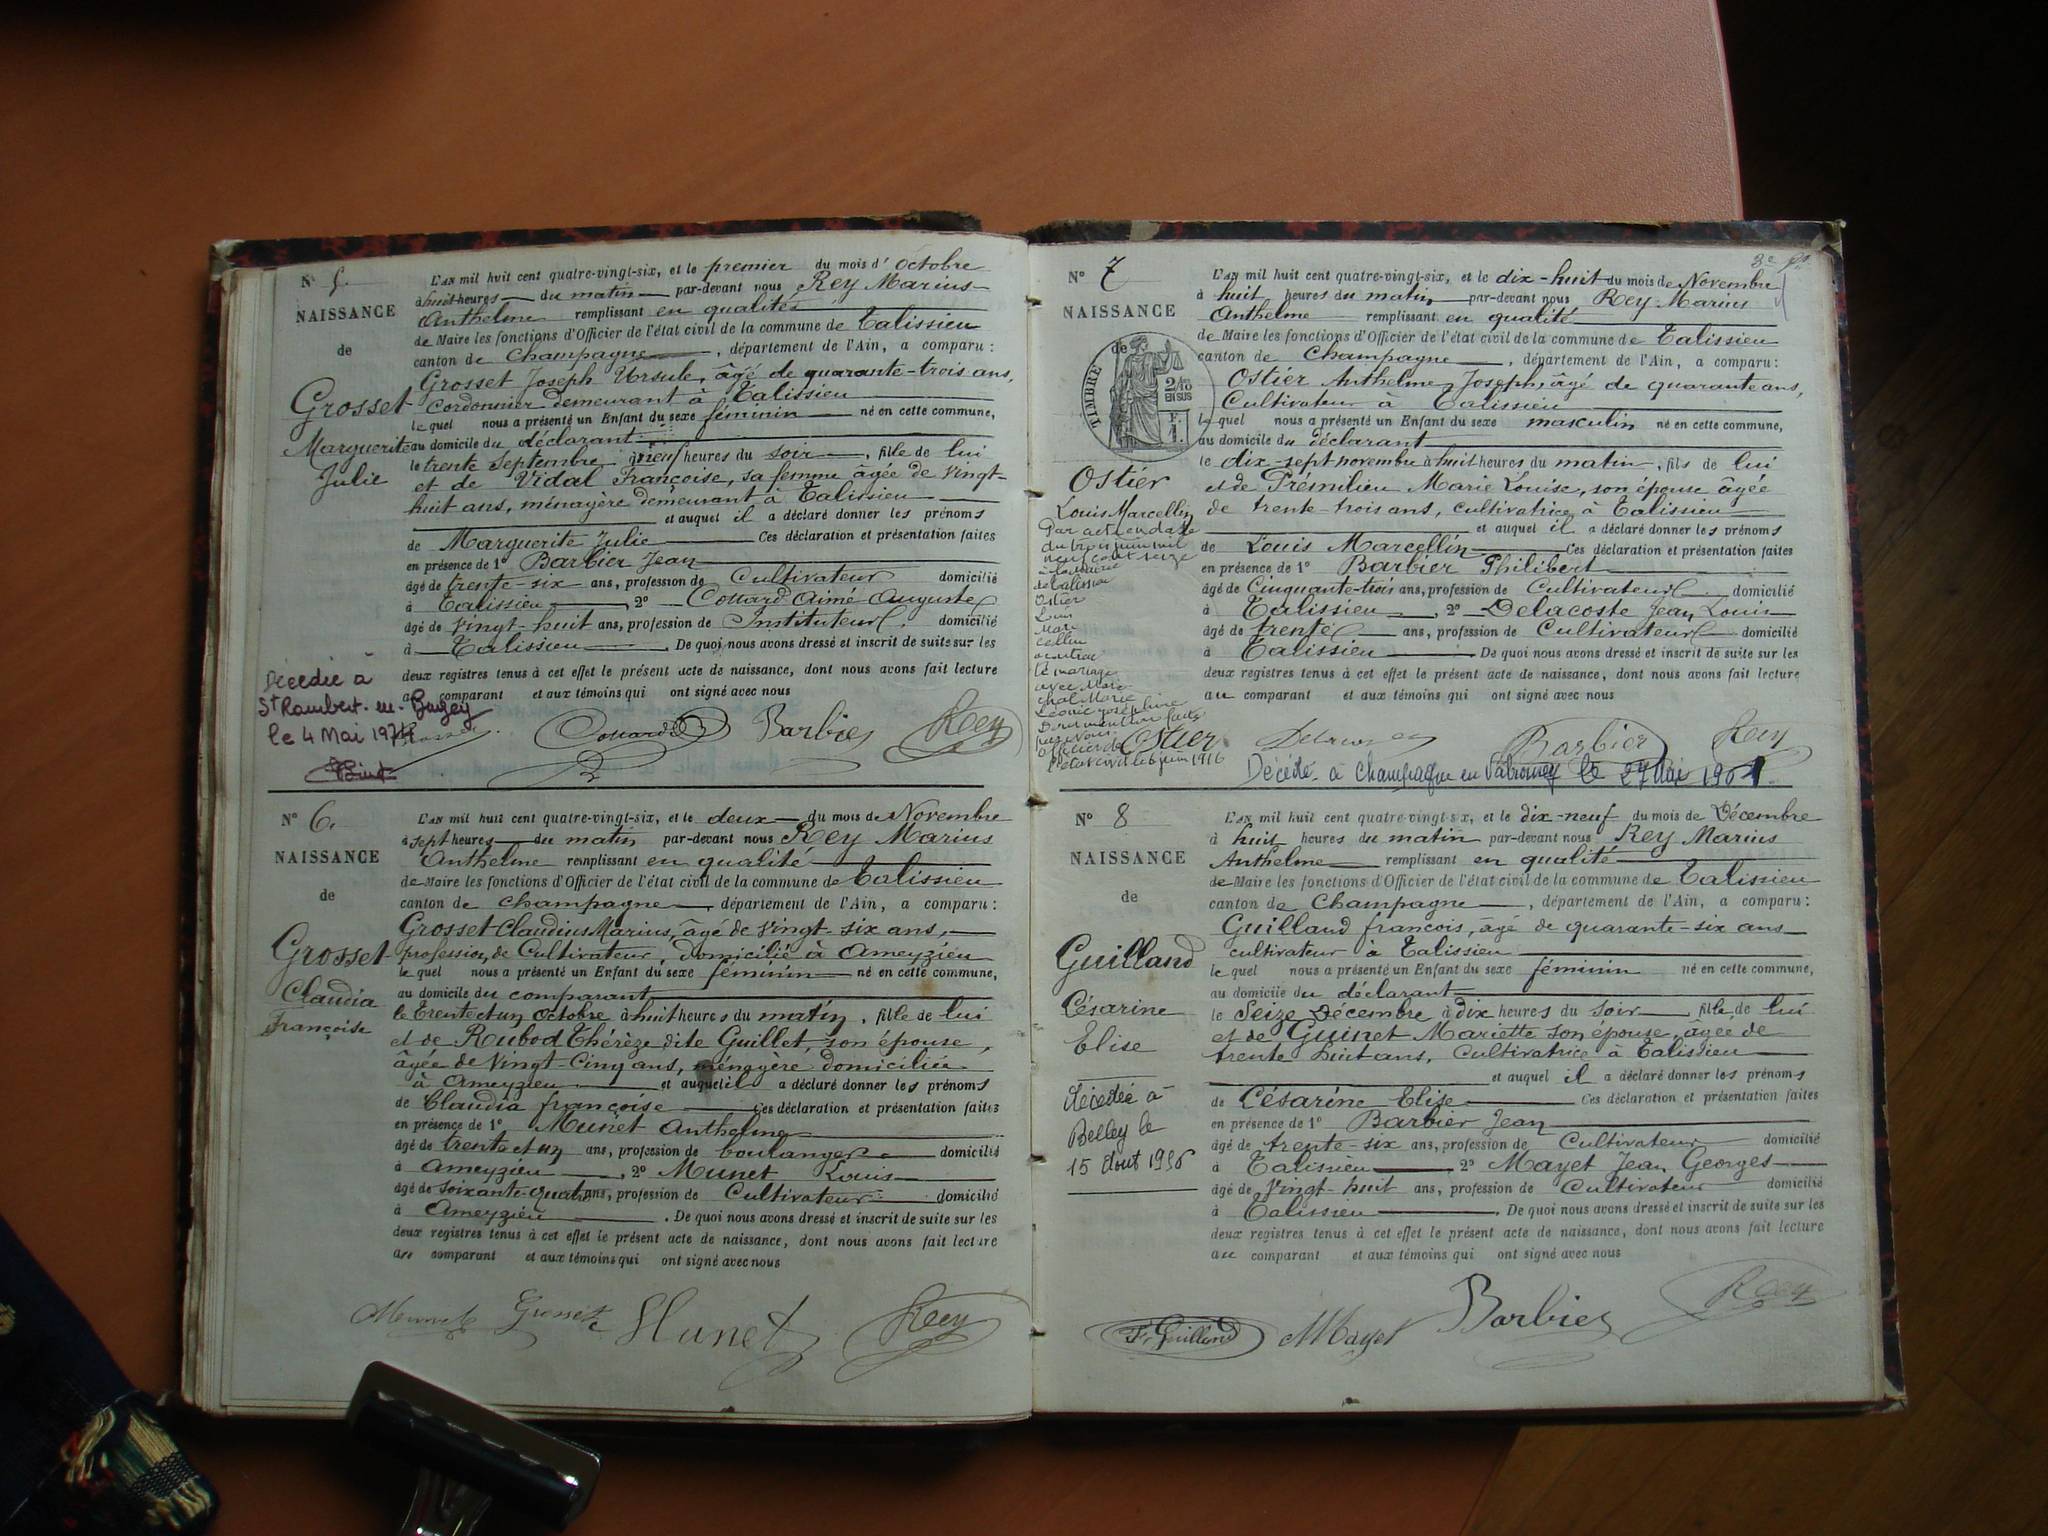 N° 5.
NAISSANCE
de
Grosset
Marguerite
Julie
Décédée à
St Rambert-en-Bugey
le 4 Mai 1974
L'AN mil huit cent quatre-vingt-six, et le premier du mois d'octobre
à huit heures du matin par-devant nous Rey Marius
Anthelme remplissant en qualité
de Maire les fonctions d'Officier de l'état civil de la commune de Talissieu
canton de Champagne, département de l'Ain, a comparu :
Grosset Joseph Ursule, âgé de quarante-trois ans,
Cordonnier demeurant à Talissieu
lequel nous a présenté un Enfant du sexe féminin né en cette commune,
au domicile du déclarant
le trente Septembre à neuf heures du soir, fille de lui
et de Vidal Françoise, sa femme âgée de vingt-
huit ans, ménagère demeurant à Talissieu
et auquel il a déclaré donner les prénoms
de Marguerite Julie Ces déclaration et présentation faites
en présence de 1° Barbier Jean
âgé de trente-six ans, profession de Cultivateur domicilié
à Talissieu, 2° Cottard Aimé Auguste
âgé de vingt-huit ans, profession de Instituteur domicilié
à Talissieu. De quoi nous avons dressé et inscrit de suite sur les
deux registres tenus à cet effet le présent acte de naissance, dont nous avons fait lecture
au comparant et aux témoins qui ont signé avec nous
Barbier Rey
N° 6.
NAISSANCE
de
Grosset
Claudia
Françoise
L'AN mil huit cent quatre-vingt-six, et le deux du mois de Novembre
à sept heures du matin par-devant nous Rey Marius
Anthelme remplissant en qualité
de Maire les fonctions d'Officier de l'état civil de la commune de Talissieu
canton de Champagne, département de l'Ain, a comparu :
Grosset Claudius Marius, âgé de vingt-six ans,
profession de Cultivateur, domicilié à Ameyzieu
lequel nous a présenté un Enfant du sexe féminin né en cette commune,
au domicile du comparant
le trente et un octobre à huit heures du matin, fille de lui
et de Rubod Thérèze dite Guillet, son épouse,
âgée de vingt-cinq ans, ménagère domiciliée
à Ameyzieu et auquel il a déclaré donner les prénoms
de Claudia françoise Ces déclaration et présentation faites
en présence de 1° Munet Anthelme
âgé de trente et un ans, profession de boulanger domicilié
à Ameyzieu, 2° Munet Louis
âgé de soixante-quatre ans, profession de Cultivateur domicilié
à Ameyzieu. De quoi nous avons dressé et inscrit de suite sur les
deux registres tenus à cet effet le présent acte de naissance, dont nous avons fait lecture
au comparant et aux témoins qui ont signé avec nous
Munet Rey
N° 7
NAISSANCE
de
TIMBRE
2/10
EN SUS
F.
1.
Ostier
Louis Marcellin
Par acte en date
du trois juin mil
neuf cent seize
à la mairie
de Talissieu
Ostier
Louis
Mar
cellin
a contracté
le mariage
avec Maré
chal Marie
Léonie Joséphine
l'état civil le 6 juin 1916
L'AN mil huit cent quatre-vingt-six, et le dix-huit du mois de Novembre
à huit heures du matin par-devant nous Rey Marius
Anthelme remplissant en qualité
de Maire les fonctions d'Officier de l'état civil de la commune de Talissieu
canton de Champagne, département de l'Ain, a comparu :
Ostier Anthelme Joseph, âgé de quarante ans,
Cultivateur à Talissieu
lequel nous a présenté un Enfant du sexe masculin né en cette commune,
au domicile du déclarant
le dix-sept novembre à huit heures du matin, fils de lui
et de Prémilieu Marie Louise, son épouse âgée
de trente-trois ans, cultivatrice à Talissieu
et auquel il a déclaré donner les prénoms
de Louis Marcellin Ces déclaration et présentation faites
en présence de 1° Barbier Philibert
âgé de Cinquante-trois ans, profession de Cultivateur domicilié
à Talissieu, 2° Delacoste Jean Louis
âgé de trente ans, profession de Cultivateur domicilié
à Talissieu De quoi nous avons dressé et inscrit de suite sur les
deux registres tenus à cet effet le présent acte de naissance, dont nous avons fait lecture
au comparant et aux témoins qui ont signé avec nous
Ostier Barbier Rey
Décédé à Champagne en Valromey le 27 Mai
N° 8
NAISSANCE
de
Guilland
Césarine
Elise
Décédée à
Belley le
15 Août 1956
L'AN mil huit cent quatre-vingt-six, et le dix-neuf du mois de Décembre
à huit heures du matin par-devant nous Rey Marius
Anthelme remplissant en qualité
de Maire les fonctions d'Officier de l'état civil de la commune de Talissieu
canton de Champagne, département de l'Ain, a comparu :
Guilland françois, âgé de quarante-six ans
cultivateur à Talissieu
lequel nous a présenté un Enfant du sexe féminin né en cette commune,
au domicile du déclarant
le Seize Décembre à dix heures du soir, fille de lui
et de Guinet Mariette son épouse, âgée de
trente huit ans, Cultivatrice à Talissieu
et auquel il a déclaré donner les prénoms
de Césarine Elise Ces déclaration et présentation faites
en présence de 1° Barbier Jean
âgé de trente-six ans, profession de Cultivateur domicilié
à Talissieu, 2° Mayet Jean Georges
âgé de vingt-huit ans, profession de Cultivateur domicilié
à Talissieu. De quoi nous avons dressé et inscrit de suite sur les
deux registres tenus à cet effet le présent acte de naissance, dont nous avons fait lecture
au comparant et aux témoins qui ont signé avec nous
Fs Guilland Mayet Barbier Rey